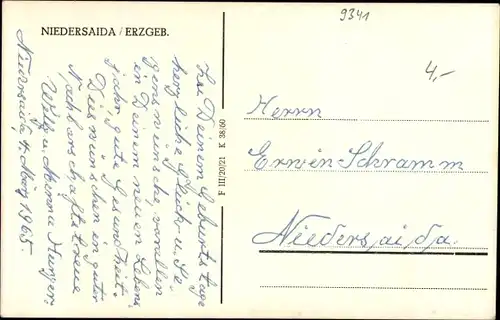 NIEDERSAIDA / ERZGEB.
9341
4,-
Zu Deinem Geburtstage
herzliche Glück u. Se
genswünsche, vor allem
in Deinem neuen Lebens
jahr gute Gesundheit.
Dies wünschen in guter
Nachbarschaftstreue
Willy u. Minna Hunger.
Niedersaida, 4. März 1965.
F III/20/21 K 38/60
Herrn
Erwin Schramm
Niedersaida.